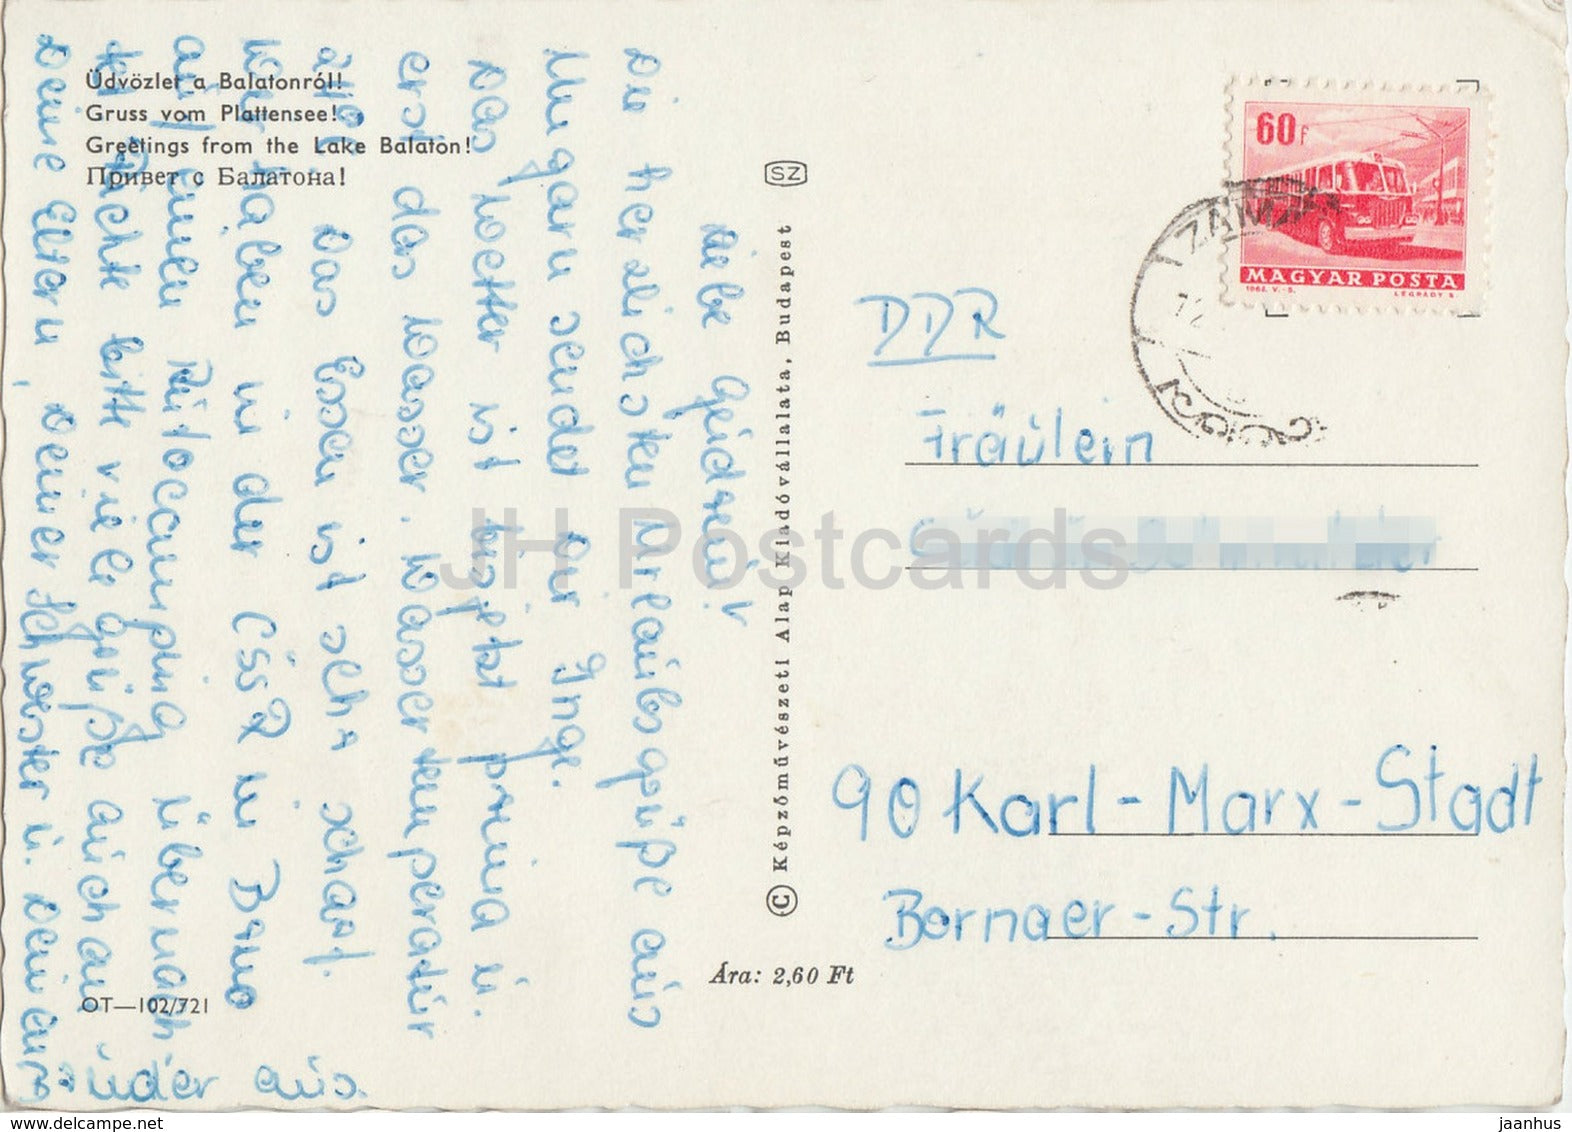 Üdvözlet a Balatonról!
Gruss vom Plattensee!
Greetings from the Lake Balaton!
Привет с Балатона!
Liebe Gudrun!
Die herzlichsten Urlaubsgrüße aus
Ungarn sendet Dir Inge.
Das Wetter ist bisjetzt prima u.
erst das Wasser. Wassertemperatur
Das Essen ist sehr scharf.
Wir haben in der ČSSR in Brno
auf einen Autocamping übernach
ten Richte bitte viele Grüße auch an
Deine Eltern, Deiner Schwester u. Deinem
üder aus.
OT—102/721
SZ
© Képzőművészeti Alap Kiadóvállalata, Budapest
Ára: 2,60 Ft
60f
MAGYAR POSTA
1963. V.-S. LÉGRÁDY S.
DDR
Fräulein
90 Karl-Marx-Stadt
Bornaer-Str.
JH Postcards
delcampe.net
jaanhus